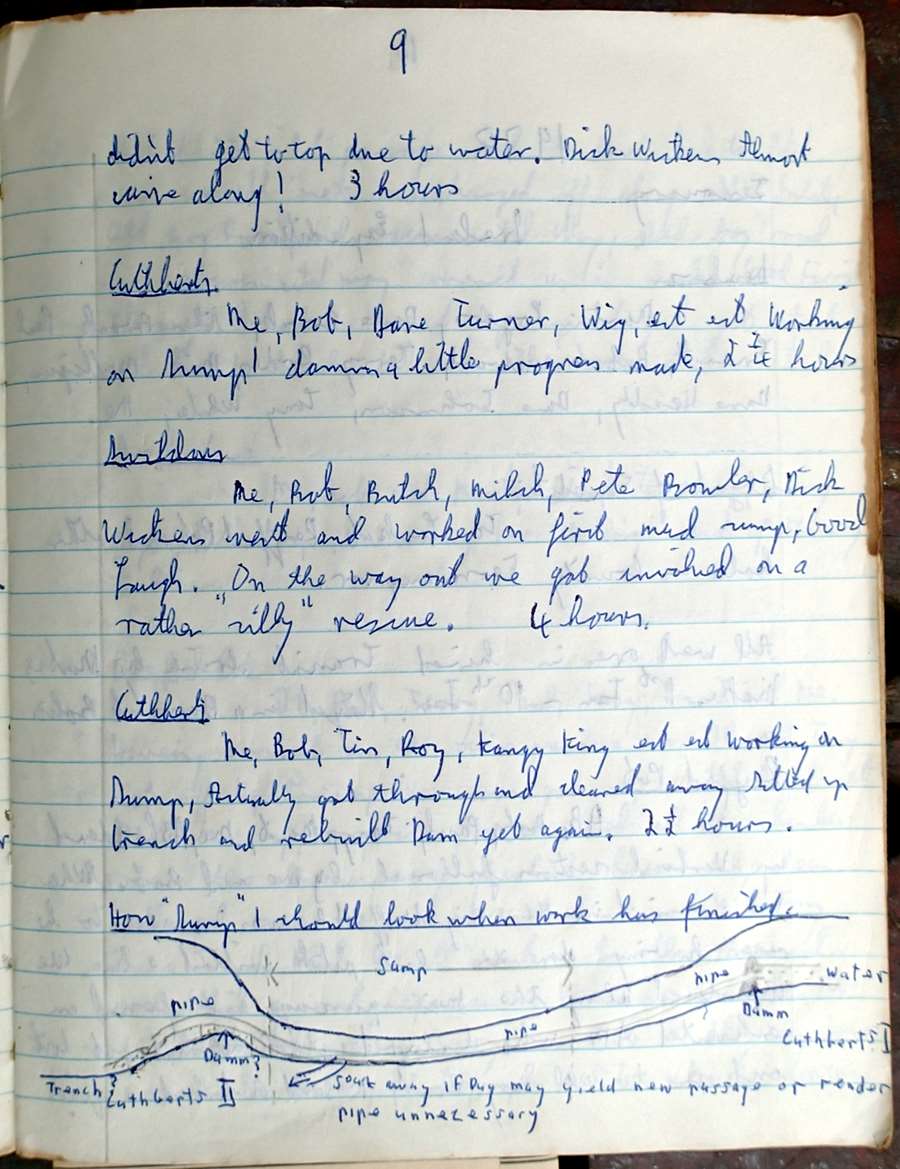 9
didn't get to top due to water. Dick Wickens Almost
came along! 3 hours
Cuthberts.
Me, Bob, Dave Turner, Wig, ect ect Working
on Dump! damm a little progress made, 2 hours
Me, Bob, Butch, Milch, Pete Bowler, Dick
Wickens went and worked on first mud sump, Good
Laugh. On the way out we got involved on a
rather "silly" rescue. 4 hours.
Cuthberts
Me, Bob, Tim, Roy, Kangy King ect ect working on
Sump, Actually got through and cleared away silted up
trench and rebuilt Dam yet again. 2½ hours.
How "Sump" 1 should look when work has finished.
Sump
pipe
pipe
pipe
water
Damm
Damm?
Cuthberts I
Trench?
Cuthberts II
Soak away if Dug may yield new passage or render
pipe unnecessary